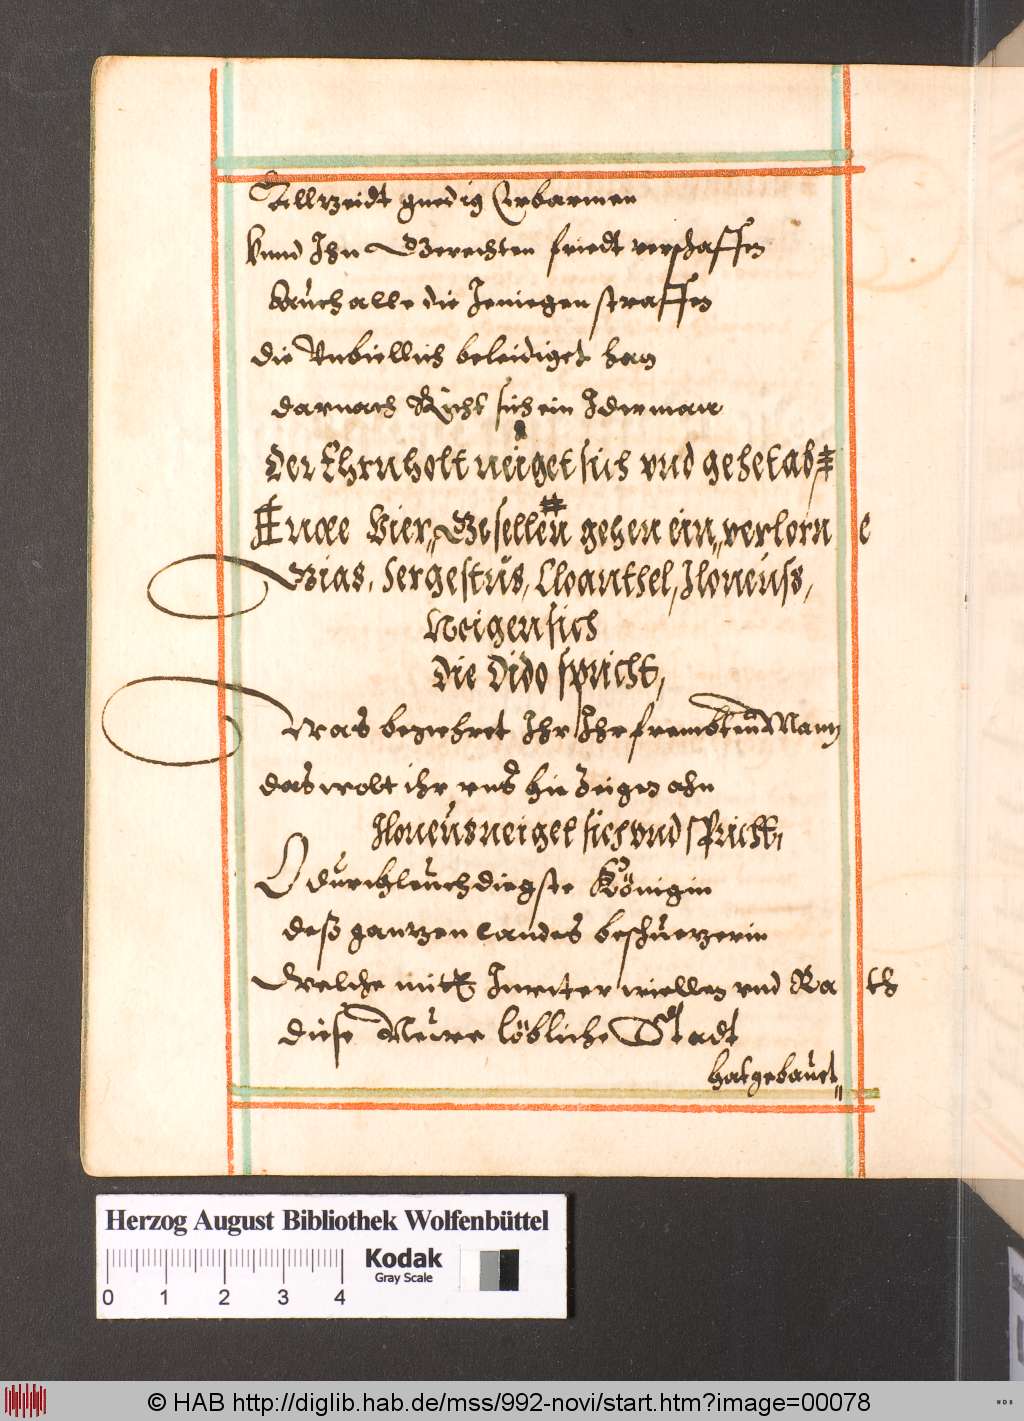 Allzeidt gnedig Erbarmen
Vnnd Ihn Gerechten friedt verschaffen
Auch alle die Jeniegen straffen
die Vnbiellich beleidiget han
darnach Richt sich ein Iderman
Der Ehrnholt neiget sich vnd gehet ab
Eneae Vier Gesellen gehen ein, verlorne
Gias, Sergestus, Cloanthel, Iloneuss,
Neigen sich
Die Dido spricht,
Was begehret Ihr Ihr frembten Man
das wolt ihr vns hie Zeigen ahn
Iloneus neiget sich vnd spricht,
O durchleuchdiegste Königin
deß gantzen landes beschuetzerin
Welche mitt Inviter wiellen vnd Rath
diese Neuwe löbliche Stadt
hat gebauet
Herzog August Bibliothek Wolfenbüttel
Kodak
Gray Scale
0 1 2 3 4
© HAB http://diglib.hab.de/mss/992-novi/start.htm?image=00078